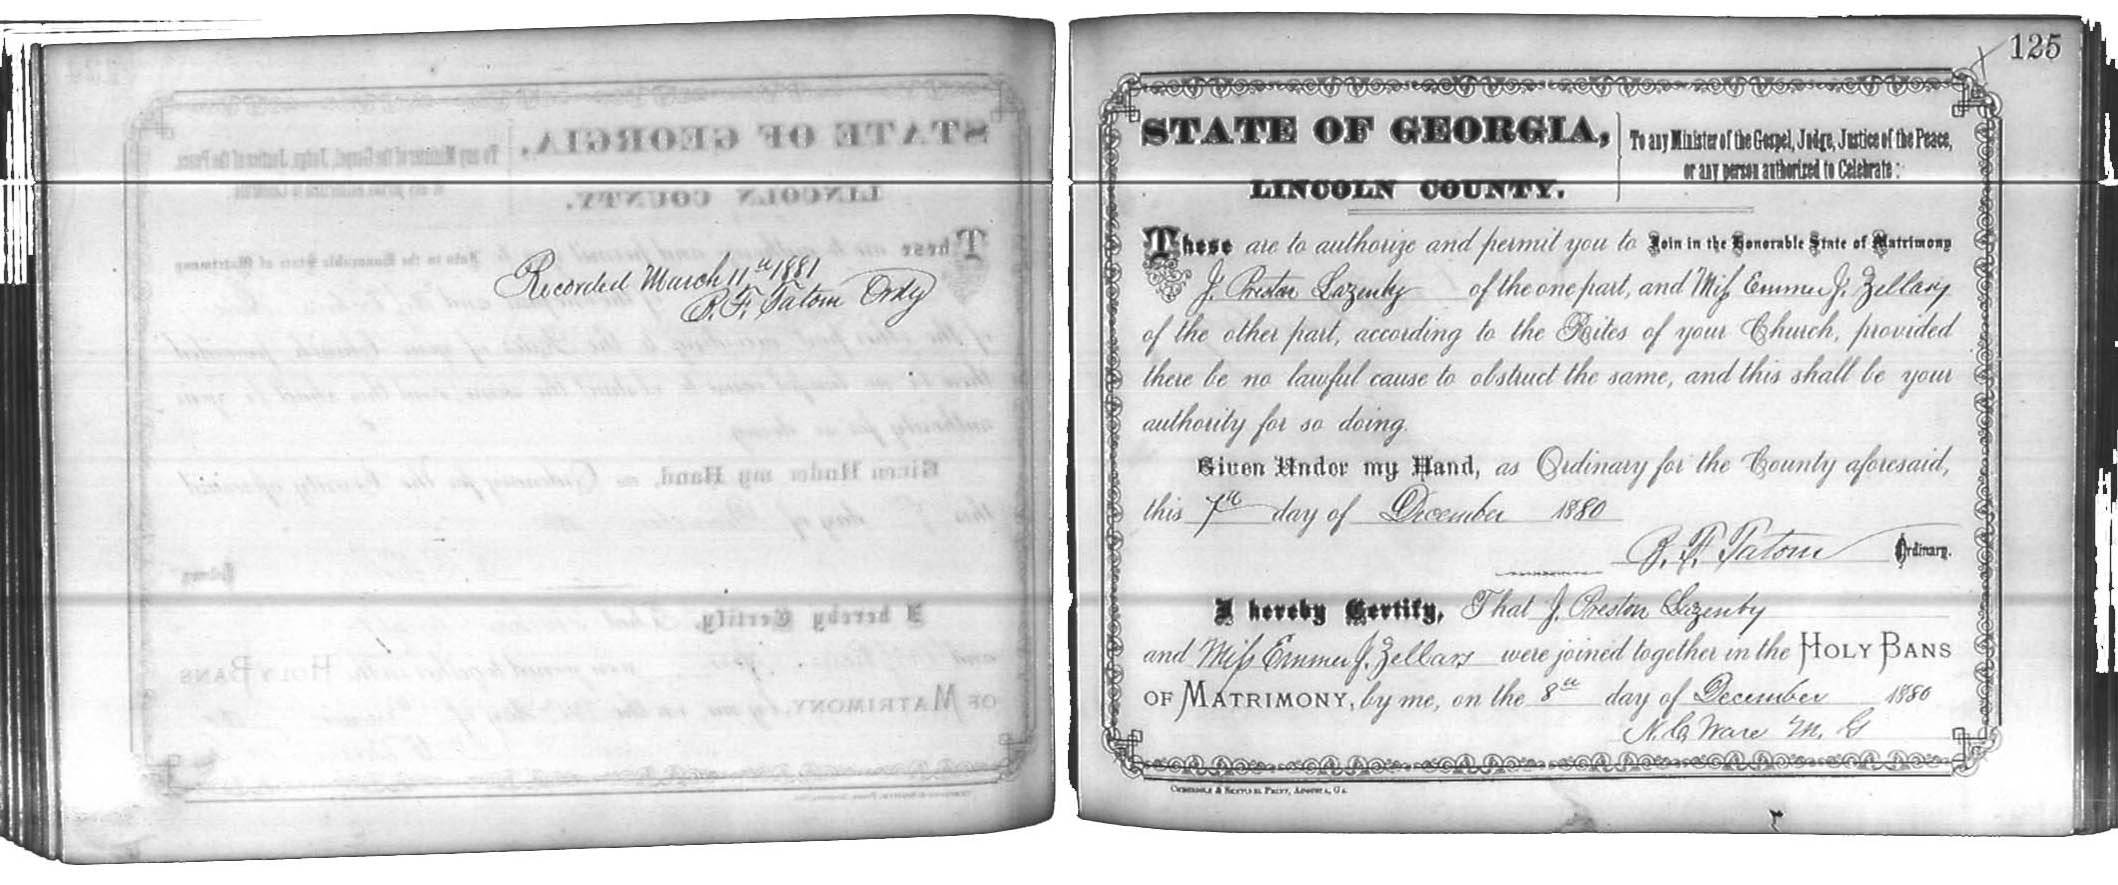 Recorded March 11th 1881
B. F. Tatom Ordy
125
STATE OF GEORGIA,
LINCOLN COUNTY.
To any Minister of the Gospel, Judge, Justice of the Peace,
or any person authorized to Celebrate:
These are to authorize and permit you to Join in the Honorable State of Matrimony
J. Preston Lazenby of the one part, and Miss Emmer J. Zellars
of the other part, according to the Rites of your Church, provided
there be no lawful cause to obstruct the same, and this shall be your
authority for so doing.
Given Under my Hand, as Ordinary for the County aforesaid,
this 7th day of December 1880
B. F. Tatom Ordinary.
I hereby Certify, That J. Preston Lazenby
and Miss Emmer J. Zellars were joined together in the HOLY BANS
OF MATRIMONY, by me, on the 8th day of December 1880
N. C. Ware M. G
CHRONICLE & SENTINEL PRINT, AUGUSTA, GA.